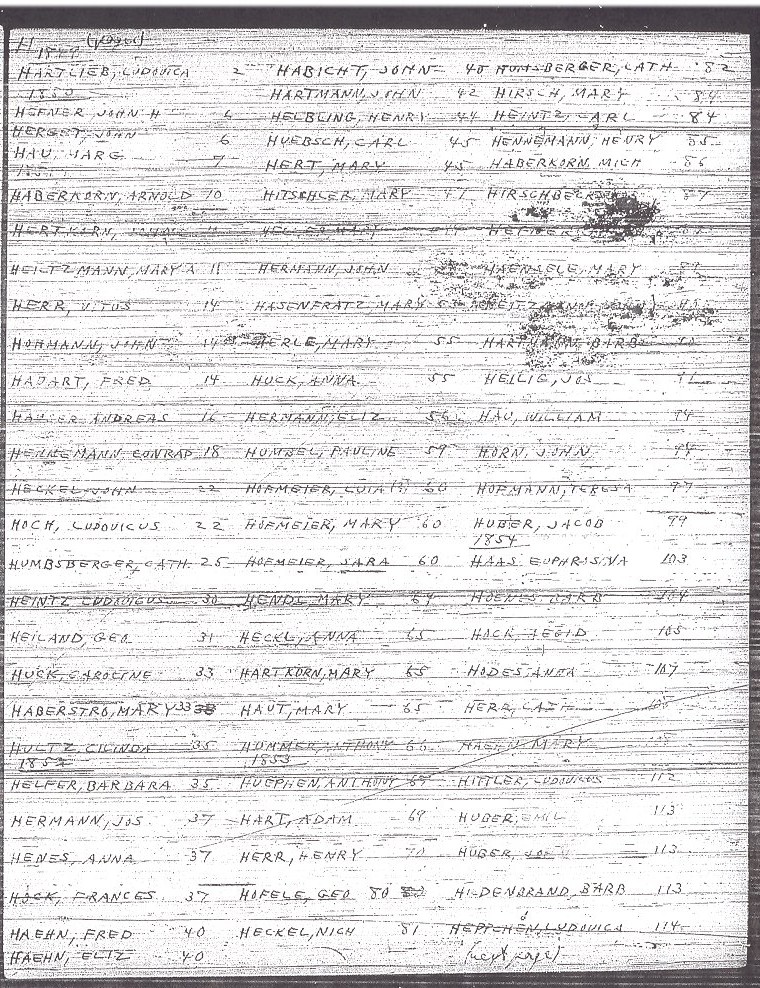 H (pages)
1849
HARTLIEB, LUDOVICA 2
1850
HEFNER, JOHN H 6
HERGET, JOHN 6
HAU, MARG 7
1851
HABERKORN, ARNOLD 10
HERTKORN, JOHN
HEITZMANN, MARY A 11
HERR, VITUS 14
HOHMANN, JOHN 14
HADART, FRED 14
HAUSER ANDREAS 16
HENNEMANN, CONRAD 18
HECKEL JOHN 22
HOCH, LUDOVICUS 22
HUMBSBERGER, CATH. 25
HEINTZ LUDOVICUS 30
HEILAND, GEO 31
HUCK, CAROLINE 33
HABERSTRO, MARY 33
HULTZ, CILINDA 35
1852
HELFER, BARBARA 35
HERMANN, JOS 37
HENES, ANNA 37
HOCK, FRANCES 37
HAEHN, FRED 40
HAEHN, ELIZ 40
HABICHT, JOHN 40
HARTMANN, JOHN 42
HELBLING, HENRY 44
HUEBSCH, CARL 45
HERT, MARY 45
HITSCHLER, MARY 47
HELLER MARY
HERMANN, JOHN
HASENFRATZ, MARY
HERLE, MARY 55
HUCK, ANNA 55
HERMANN, ELIZ 56
HUMBEL, PAULINE 59
HOFMEIER, LUIA (?) 60
HOFMEIER, MARY 60
HOFMEIER, SARA 60
HENDL, MARY 64
HECKL, ANNA 65
HARTKORN, MARY 65
HAUT, MARY 65
HUMMER, ANTHONY 66
1853
HUEPHEN, ANTHONY 67
HART, ADAM 69
HERR, HENRY 70
HOFELE, GEO 80
HECKEL, NICH 81
HUMSBERGER, CATH 82
HIRSCH, MARY 84
HEINTZ, CARL 84
HENNEMANN, HENRY 85
HABERKORN, MICH 86
HIRSCHBE 87
HAENAELE, MARY 89
HEITZMANN
HARTMANN, BARB 90
HEILIG, JOS 91
HAU, WILLIAM 94
HORN, JOHN 94
HOFMANN, TERESA 97
HUBER, JACOB 99
1854
HAAS EUPHROSINA 103
HOENES BARB 104
HOCK, AEGID 105
HODES ANNA 107
HERR, CATH
HAEHN, MARY
HITTLER, LUDOVICUS 112
HUBER, EMIL 113
HUBER, JOHN 113
HILDENBRAND, BARB 113
HEPPCHEN, LUDOVICA 114
(next page)